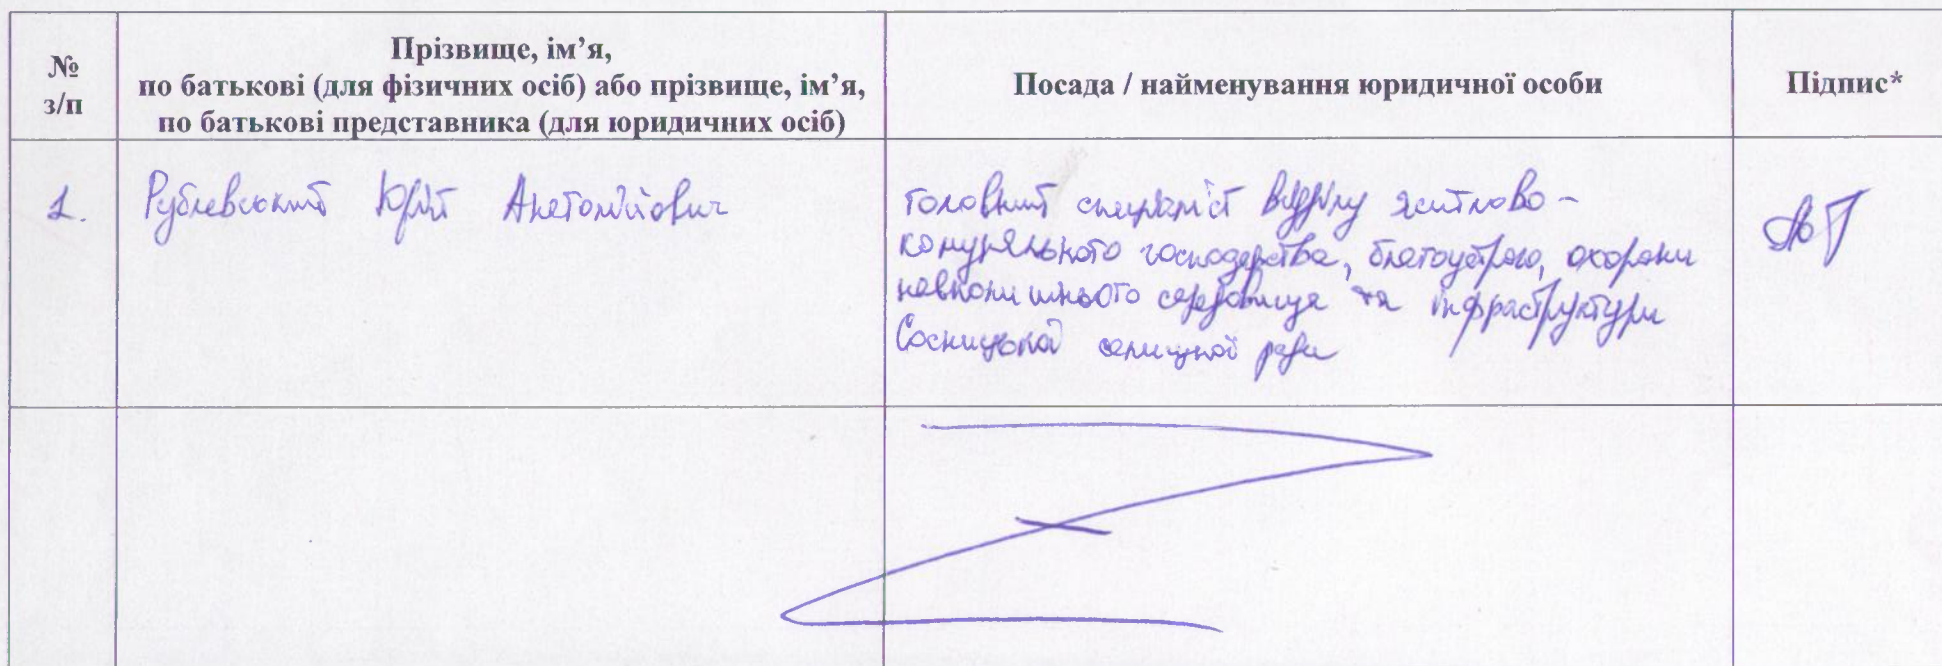 №
з/п
Прізвище, ім’я,
по батькові (для фізичних осіб) або прізвище, ім’я,
по батькові представника (для юридичних осіб)
Посада / найменування юридичної особи
Підпис*
1.
Рублевський Юрій Анатолійович
головний спеціаліст відділу житлово-
комунального господарства, благоустрою, охорони
навколишнього середовища та інфраструктури
Сосницької селищної ради